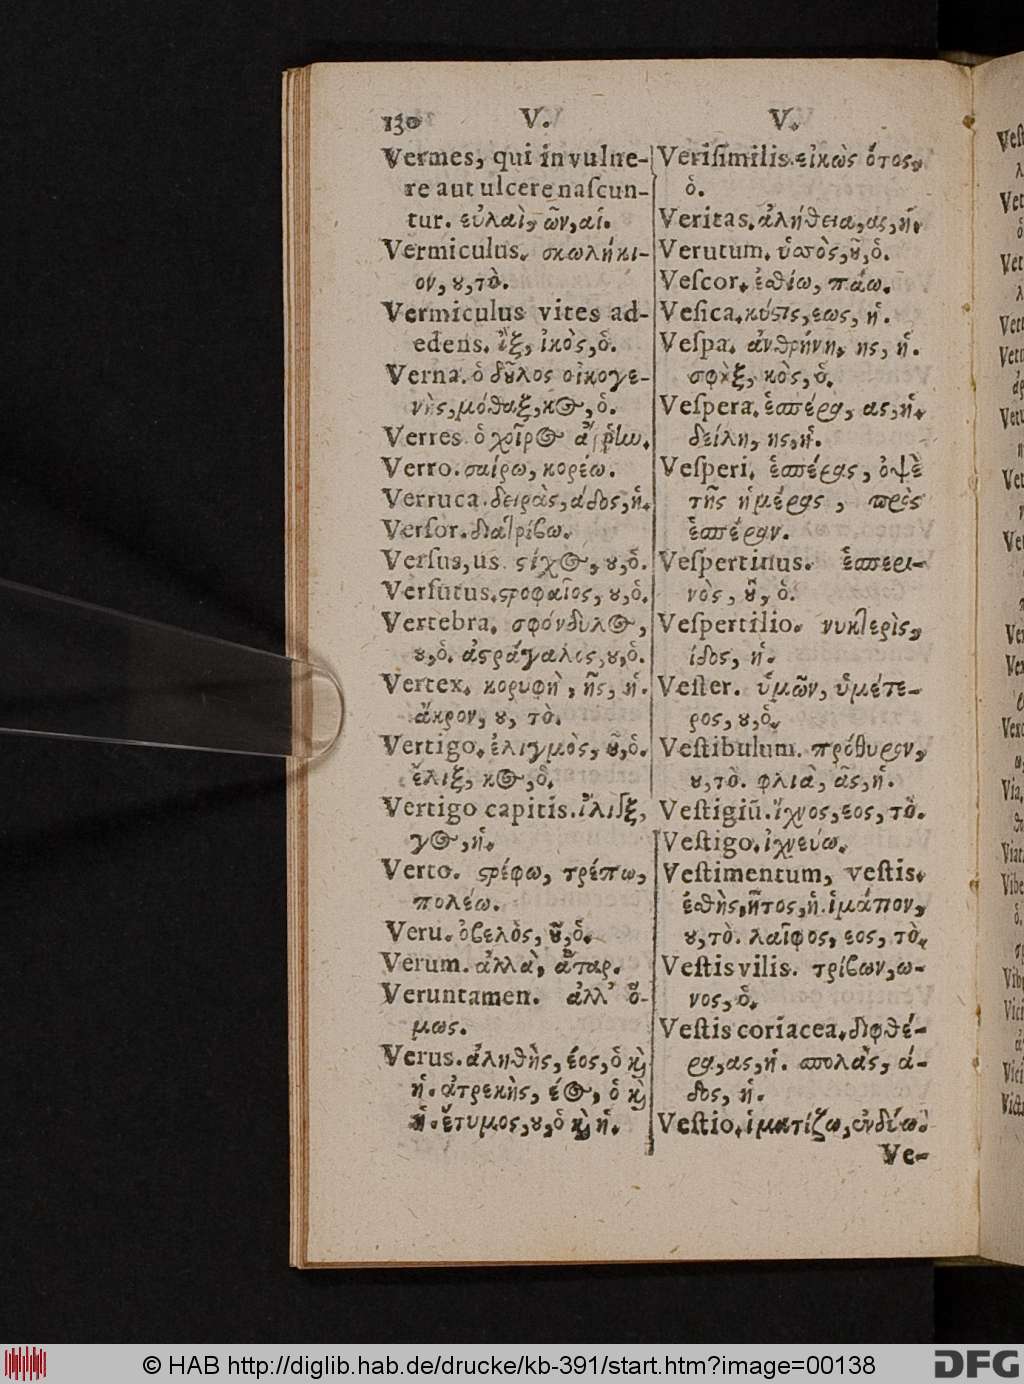 130 V. V.
Vermes, qui in vulne-
re aut ulcere naſcun-
tur. εὐλαὶ, ῶν, αἱ.
Vermiculus. σκωλήκι-
ον, ȣ, τὸ.
Vermiculus vites ad-
edens. ἴξ, ἰκὸς, ὁ.
Verna. ὁ δοῦλος οἰκογε-
νὴς, μόθαξ, κος, ὁ.
Verres. ὁ χοῖρος
Verro. σαίρω, κορέω.
Verruca. δειρὰς, άδος, ἡ.
Verſor. διατρίβω.
Verſus, us. ϛίχος, ȣ, ὁ.
Verſutus. ϛροφαῖος, ȣ, ὁ.
Vertebra. σφόνδυλος,
ȣ, ὁ. ἀϛράγαλος, ȣ, ὁ.
Vertex. κορυφὴ, ῆς, ἡ.
ἄκρον, ȣ, τὸ.
Vertigo. ἑλιγμὸς, ȣ͂, ὁ.
ἕλιξ, κος, ὁ.
Vertigo capitis. ἴλιγξ,
γος, ἡ.
Verto. ϛρέφω, τρέπω,
πολέω.
Veru. ὀβελὸς, ȣ͂, ὁ.
Verum. ἀλλὰ, ἄταρ.
Veruntamen. ἀλλ’ ὅ-
μως.
Verus. ἀληθὴς, έος, ὁ ϗ
ἡ. ἀτρεκὴς, έος, ὁ ϗ
ἡ. ἔτυμος, ȣ, ὁ ϗ ἡ.
Veriſimilis. εἰκὼς ότος,
ὁ.
Veritas. ἀλήθεια, ας, ἡ.
Verutum. ὑσσὸς, ȣ͂, ὁ.
Veſcor. ἐσθίω, πάω.
Veſica. κύϛις, εως, ἡ.
Veſpa. ἀνθρήνη, ης, ἡ.
σφὴξ, κὸς, ὁ.
Veſpera. ἑσπέρα, ας, ἡ.
δείλη, ης, ἡ.
Veſperi. ἑσπέρας, ὀψὲ
τῆς ἡμέρας, πρὸς
ἑσπέραν.
Veſpertinus. ἑσπερι-
νὸς, ȣ͂, ὁ.
Veſpertilio. νυκτερὶς,
ίδος, ἡ.
Veſter. ὑμῶν, ὑμέτε-
ρος, ȣ, ὁ.
Veſtibulum. πρόθυρον,
ȣ, τὸ. φλιὰ, ᾶς, ἡ.
Veſtigiū. ἴχνος, εος, τὸ.
Veſtigo. ἰχνεύω.
Veſtimentum, veſtis.
ἐσθὴς, ῆτος, ἡ. ἱμάτιον,
ȣ, τὸ. λαῖφος, εος, τὸ.
Veſtis vilis. τρίβων, ω-
νος, ὁ.
Veſtis coriacea. διφθέ-
ρα, ας, ἡ. σπολὰς, ά-
δος, ἡ.
Veſtio. ἱματίζω, ἐνδύω.
Ve-
Veſt
Via.
© HAB http://diglib.hab.de/drucke/kb-391/start.htm?image=00138
DFG